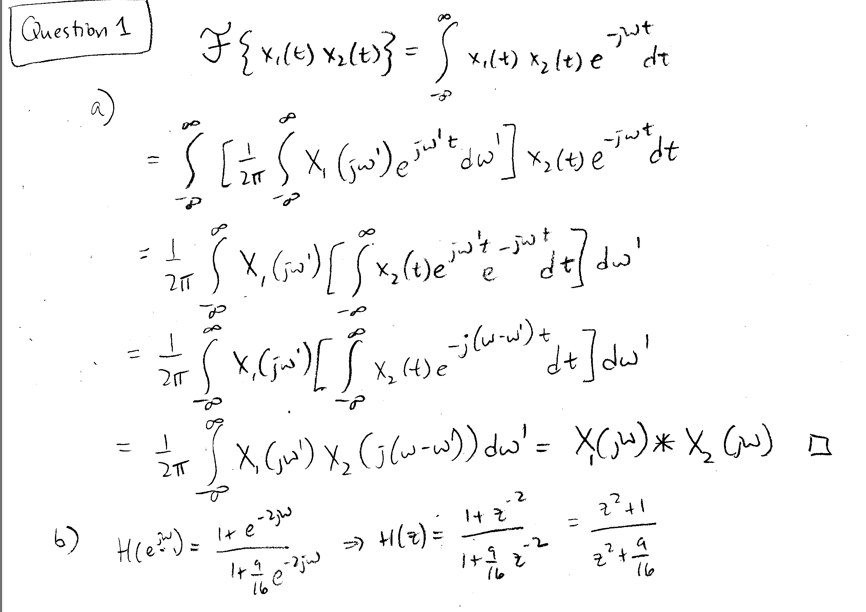 Question 1
ℱ{x₁(t) x₂(t)} = ∫_{-∞}^{∞} x₁(t) x₂(t) e^{-jωt} dt
a)
= ∫_{-∞}^{∞} [1/2π ∫_{-∞}^{∞} X₁(jω') e^{jω't} dω'] x₂(t) e^{-jωt} dt
= 1/2π ∫_{-∞}^{∞} X₁(jω') [∫_{-∞}^{∞} x₂(t) e^{jω't} e^{-jωt} dt] dω'
= 1/2π ∫_{-∞}^{∞} X₁(jω') [∫_{-∞}^{∞} x₂(t) e^{-j(ω-ω')t} dt] dω'
= 1/2π ∫_{-∞}^{∞} X₁(jω') X₂(j(ω-ω')) dω' = X₁(jω) * X₂(jω) □
b) H(e^{jω}) = (1 + e^{-2jω})/(1 + 9/16 e^{-2jω}) ⇒ H(z) = (1 + z^{-2})/(1 + 9/16 z^{-2}) = (z² + 1)/(z² + 9/16)